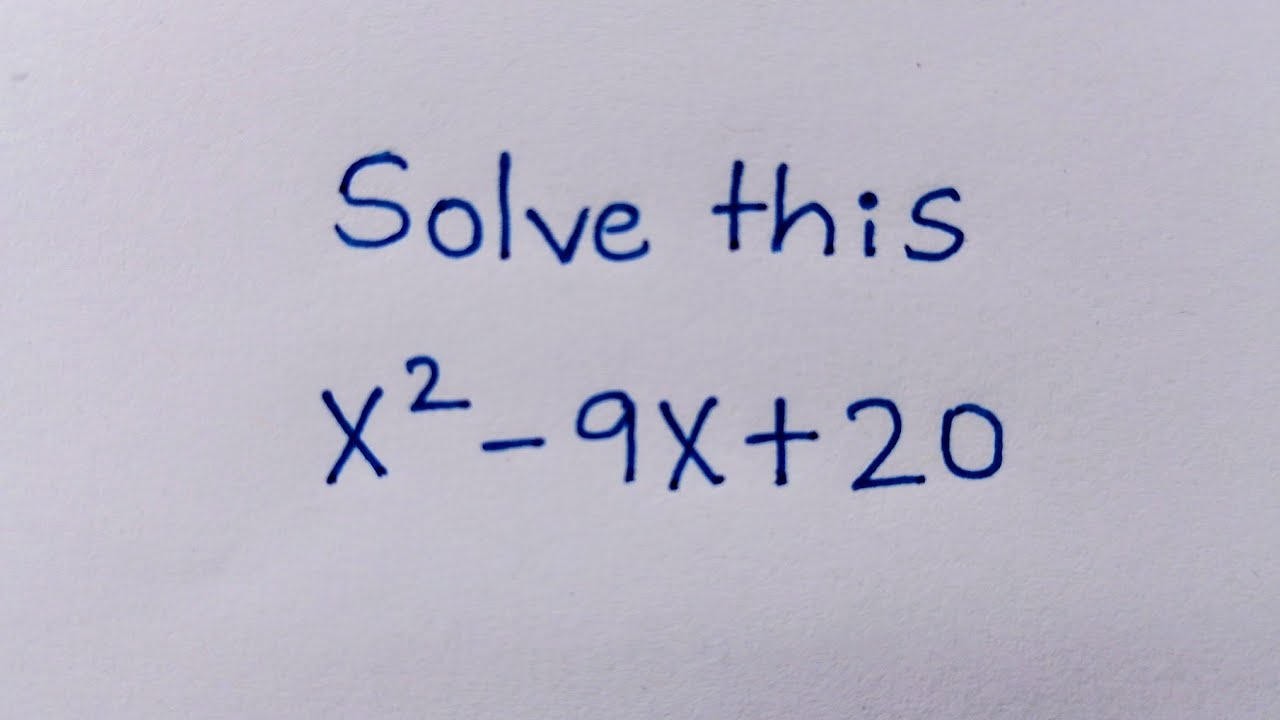 Solve this
x² - 9x + 20